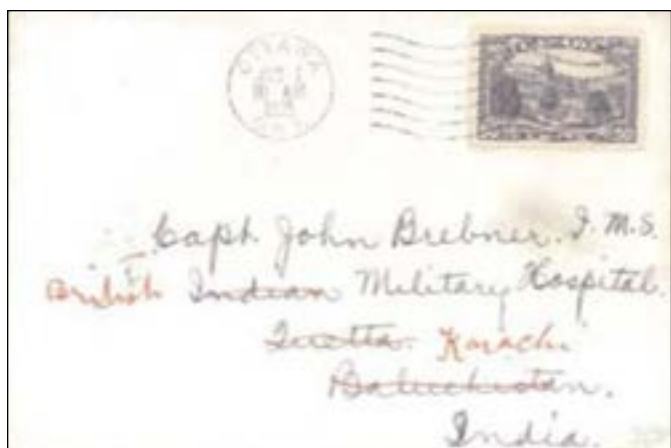 OTTAWA
Capt. John Brebner. I.M.S.
British Indian Military Hospital.
Quetta. Karachi
Baluchistan.
India.